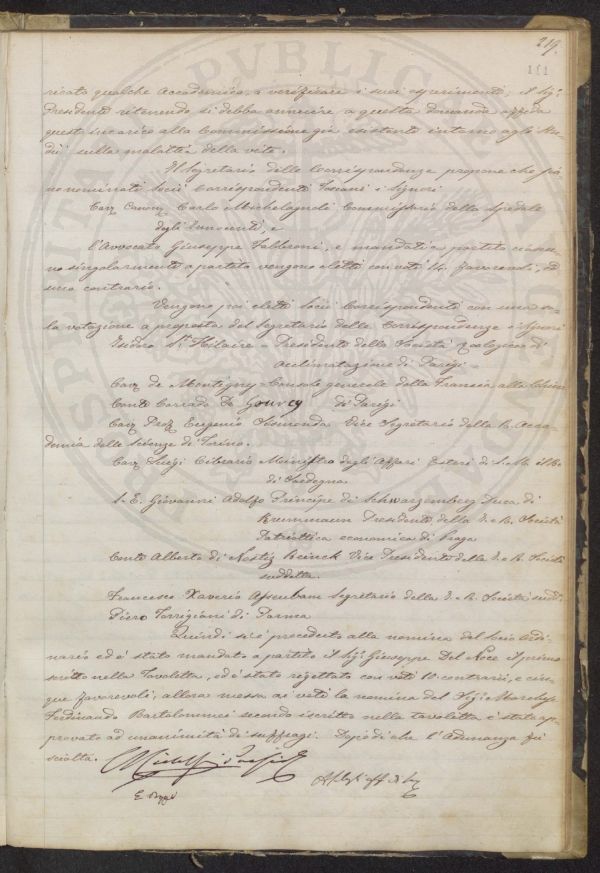 219.
111
ricato qualche Accademico, a verificare i suoi esperimenti; il Sigr.
Presidente ritenendo si debba annuire a questa domanda affida
quest' incarico alla Commissione già esistente intorno agli Stu-
dii sulla malattia della vite.
Il Segretario delle Corrispondenze propone che sia
no nominati Socii Corrispondenti Toscani i Signori
Cav. Canon. Carlo Michelagnoli Commissario dello Spedale
degli Innocenti, e
l'Avvocato Giuseppe Fabbroni, e mandati a partito ciascu-
no singolarmente a partito vengono eletti con voti 14. favorevoli, ed
uno contrario.
Vengono poi eletti Socii Corrispondenti con una so-
la votazione a proposta del Segretario delle Corrispondenze i Signori
Isidoro St. Hilaire = Presidente della Società zoologica di
acclimatazione di Parigi =
Cav. de Montigny = Console generale della Francia alla China
Conte Corrado De Gourcy di Parigi
Cav. Prof. Eugenio Sismonda Vice Segretario della R. Acca-
demia delle Scienze di Torino.
Cav. Luigi Cibrario Ministro degli Affari Esteri di S. M. il Re
di Sardegna
S. E. Giovanni Adolfo Principe di Schwarzemberg Duca di
Krummann Presidente della I. e R. Società
Patriottica economica di Praga
Conte Alberto di Nostiz Reineck Vice Presidente della I. e R. Società
suddetta.
Francesco Xaverio Segretario della I. e R. Società sudd.
Piero Torrigiani di Parma
Quindi si è proceduto alla nomina del Socio Ordi-
nario ed è stato mandato a partito il Sig. Giuseppe Del Noce il primo
scritto nella Tavoletta, ed è stato rigettato con voti 10 contrarii, e cin-
que favorevoli; allora messa ai voti la nomina del Sigr. Marchese
Ferdinando Bartolommei secondo iscritto nella tavoletta è stata ap-
provata ad unanimità di suffragi. Dopo di che l'Adunanza fu
sciolta.